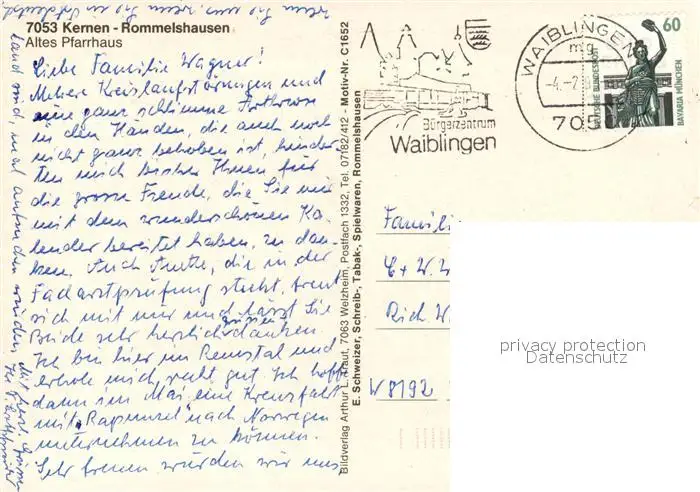 7053 Kernen - Rommelshausen
Altes Pfarrhaus
Liebe Familie Wagner!
Mehrere Kreislaufstörungen und
eine ganz schlimme Arthrose
in den Händen, die auch noch
nicht ganz behoben ist, hinder-
ten mich bisher Ihnen für
die grosse Freude, die Sie mir
mit dem wunderschönen Ka-
lender bereitet haben, zu dan-
ken. Auch, die in der
Facharztprüfung steckt, freut
sich mit mir und lässt Sie
Beide sehr herzlich grüssen
danken.
Ich bin hier im Remstal und
erhole mich recht gut. Ich hoffe
dann im Mai eine Kreuzfahrt
mit "Rapunzel" nach Norwegen
unternehmen zu können.
Sehr freuen würden wir uns
Bildverlag Arthur L. Kraut, 7063 Welzheim, Postfach 1332, Tel. 07182/412 - Motiv-Nr. C1652
E. Schweizer, Schreib-, Tabak-, Spielwaren, Rommelshausen
Bürgerzentrum
Waiblingen
WAIBLINGEN
mg
705
60
DEUTSCHE BUNDESPOST
BAVARIA MÜNCHEN
Famili
C + W. W
Rich. W
W 8192
privacy protection
Datenschutz